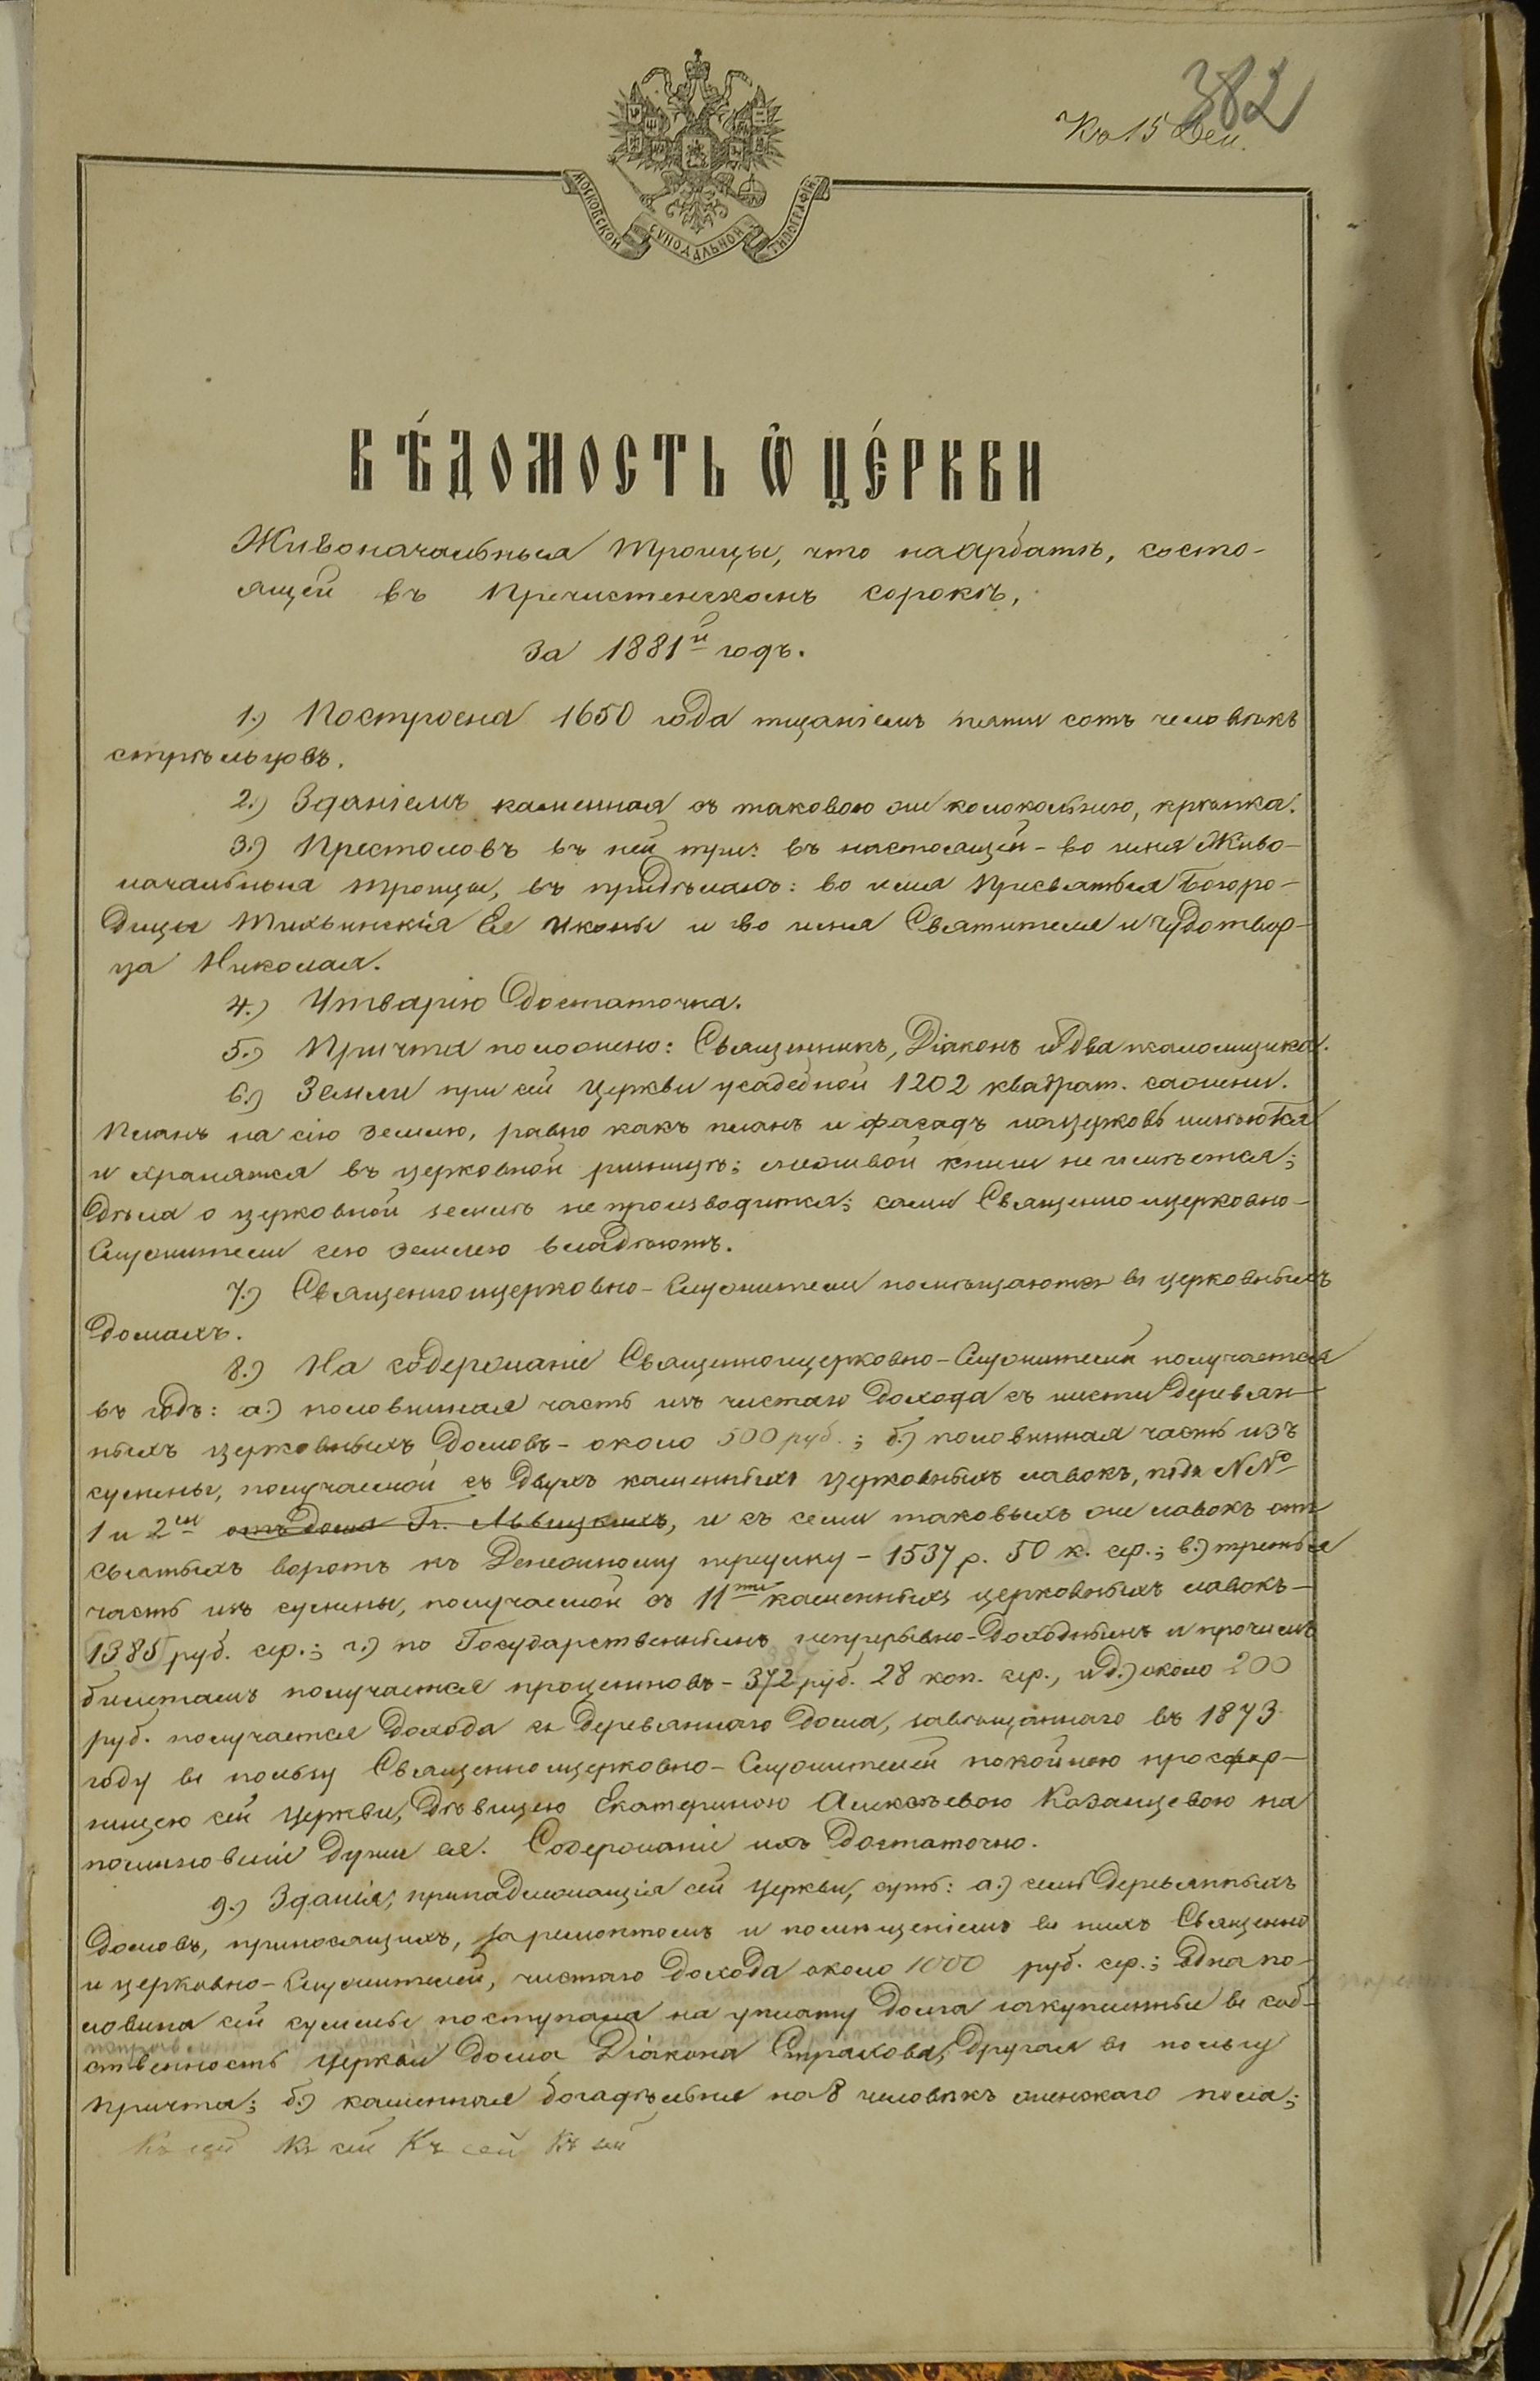 382
Къ 15 Дек.
МОСКОВСКОЙ СѴНОДАЛЬНОЙ ТИПОГРАФІИ
ВѢ́ДОМОСТЬ Ѽ ЦЕ́РКВИ
Живоначальныя Троицы, что на Арбатѣ, состо-
ящей въ Пречистенскомъ сорокѣ,
за 1881й годъ.
1.) Построена 1650 года тщаніемъ пяти сотъ человѣкъ
стрѣльцовъ.
2.) Зданіемъ каменная съ таковою же колокольнею, крѣпка.
3.) Престоловъ въ ней три: въ настоящей - во имя Живо-
начальныя Троицы, въ придѣлахъ: во имя Пресвятыя Богоро-
дицы Тихвинскія Ея Иконы и во имя Святителя и Чудотвор-
ца Николая.
4.) Утварію достаточна.
5.) Причта положено: Священникъ, Діаконъ и два псаломщика.
6.) Земли при сей Церкви усадебной 1202 квадрат. сажени.
Планъ на сію землю, равно какъ планъ и фасадъ на церковь имѣются
и хранятся въ церковной ризницѣ; межевой книги не имѣется;
дѣла о церковной землѣ не производится; сами Священноицерковно-
Служители сею землею владѣютъ.
7.) Священноицерковно-Служители помѣщаются въ церковныхъ
домахъ.
8.) На содержаніе Священноицерковно-Служителей получается
въ годъ: а.) половинная часть изъ чистаго дохода съ шести деревян-
ныхъ церковныхъ домовъ - около 500 руб.; б.) половинная часть изъ
суммы, получаемой съ двухъ каменныхъ церковныхъ лавокъ, подъ NNº
1 и 2мъ отъ дома Гг. Львицкихъ, и съ семи таковыхъ же лавокъ отъ
святыхъ воротъ къ Денежному переулку - 1537 р. 50 к. сер.; в.) третья
часть изъ суммы, получаемой съ 11ти каменныхъ церковныхъ лавокъ -
1385 руб. сер.; г.) по Государственнымъ непрерывно-доходнымъ и прочимъ
билетамъ получается процентовъ - 372 руб. 28 коп. сер., и д.) около 200
руб. получается дохода съ деревяннаго дома, завѣщаннаго въ 1873
году въ пользу Священноицерковно-Служителей покойною просфор-
ницею сей Церкви, дѣвицею Екатериною Алексѣевою Казанцевою на
поминовеніе души ея. Содержаніе ихъ достаточно.
9.) Зданія, принадлежащія сей Церкви, суть: а.) семь деревянныхъ
домовъ, приносящихъ, за ремонтомъ и помѣщеніемъ въ нихъ Священно
и церковно-Служителей, чистаго дохода около 1000 руб. сер.; одна по-
ловина сей суммы поступала на уплату долга за купленный въ соб-
ственность Церкви дома Діакона Страхова, другая въ пользу
причта; б.) каменная богадѣльня на 8 человѣкъ женскаго пола;
Къ сей Къ сей Къ сей Къ сей